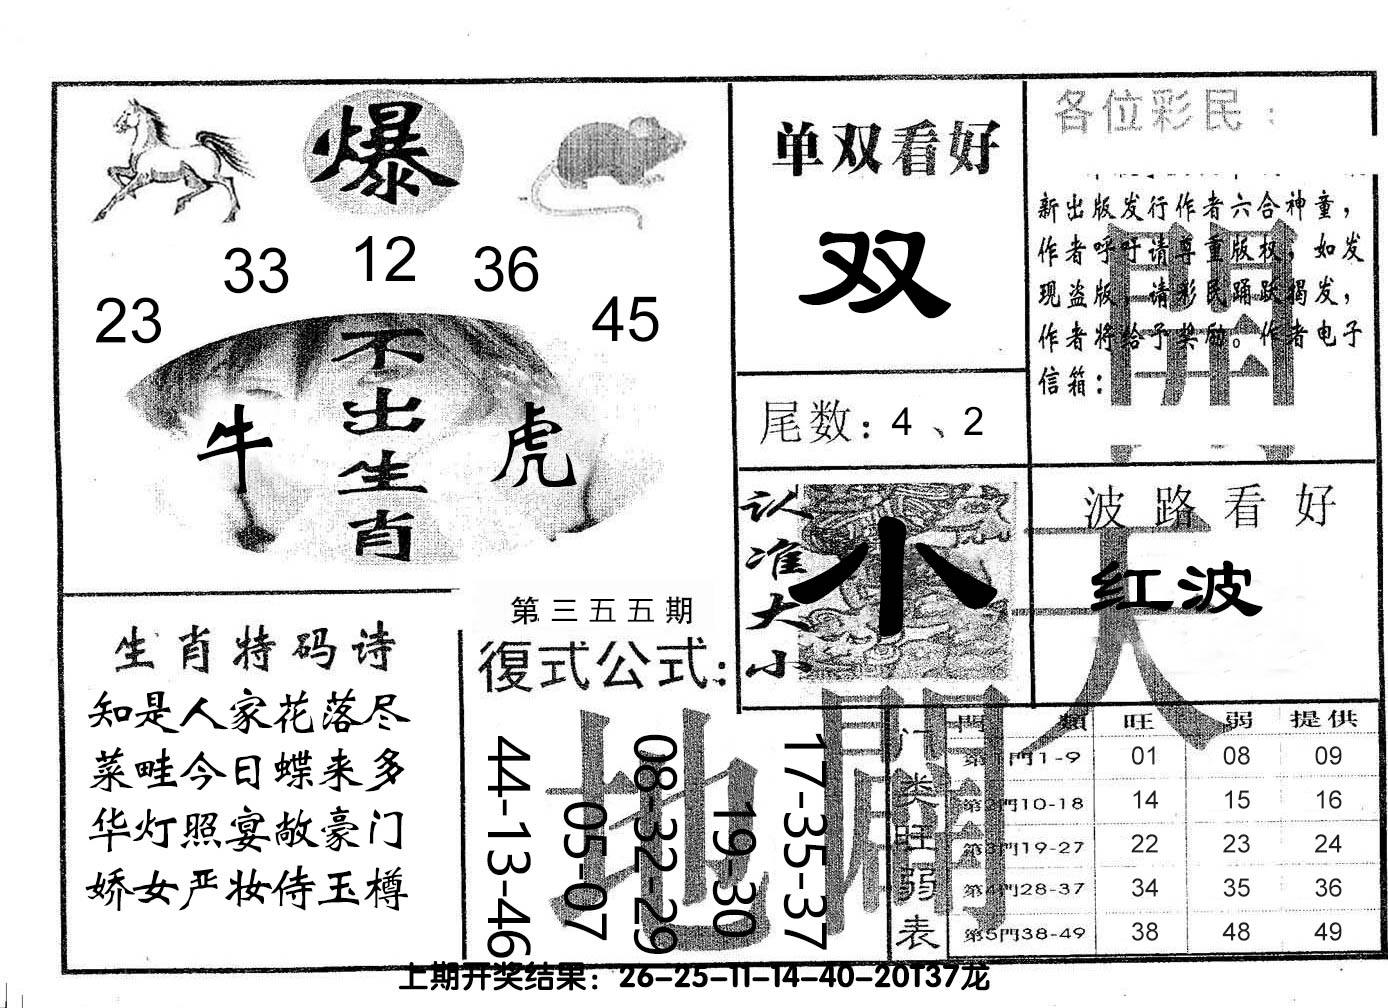 爆
33 12 36
23 45
不出生肖
牛
虎
单双看好
双
尾数：4、2
各位彩民：
新出版发行作者六合神童，
作者呼吁请尊重版权，如发
现盗版，请彩民踊跃揭发，
作者将给予奖励。作者电子
信箱：
認准大小
小
波路看好
红波
天
生肖特码诗
知是人家花落尽
菜畦今日蝶来多
华灯照宴敞豪门
娇女严妆侍玉樽
第三五五期
復式公式：
44-13-46
05-07
08-32-29
19-30
17-35-37
地
门类旺弱表
門 類 旺 弱 提供
第1門1-9 01 08 09
第2門10-18 14 15 16
第3門19-27 22 23 24
第4門28-37 34 35 36
第5門38-49 38 48 49
上期开奖结果：26-25-11-14-40-20T37龙